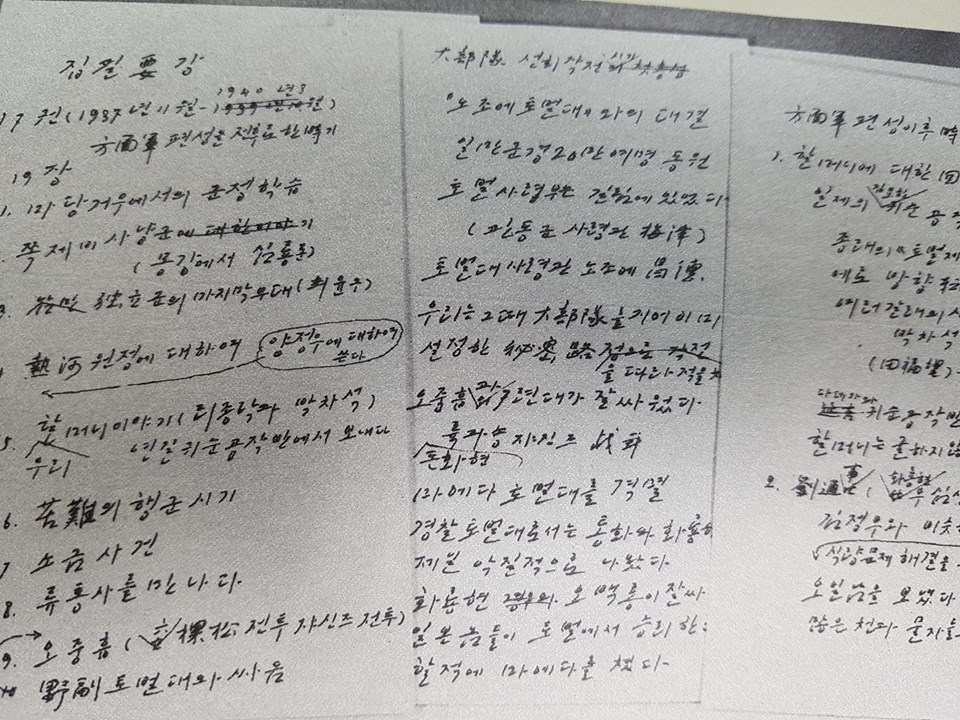 집필要강
17권(1937년11월-1939년10월)
1940년3
方面軍편성을전후로한時기
19장
1. 마당거우에서의 군정학습
쪽제비사냥군에 대한이야기
(몽강에서 김룡운)
3. 独立군의 마지막부대(최윤구)
熱河원정에 대하여
양정우에대하여
쓴다
5. 할머니이야기(리종락과 박차석)
우리
년길귀순공작반에서 보내다
6. 苦難의 행군시기
7 소금사건
8. 류통사를만나다
9. 오중흡( 전투 쟈신즈전투)
野副토벌대와싸움
大部隊 선회작전
"노조에토벌대"와의 대결
일만군경20만여명 동원
토벌사령부는 길림에있었다
(관동군 사령관 梅津)
토벌대사령관 노조에 昌德.
우리는그때 大部隊를지어이미
설정한 秘密路 점으로 작전
을 따라 적을
오중흡과 련대가 잘싸웠다
륙과송 쟈신즈 战斗
돈화현
마에다 토벌대를 격멸
경찰토벌대로서는 통화와 화룡
제일 악질적으로 나왔다.
화룡현 오백룡이잘싸
일본놈들이 토벌에서 승리한
할적에 마에다를 쳤다.
方面軍편성이후時
1. 할머니에 대한
일제의 귀순공
종래의"토벌제
에로 방향
여러갈래의
박차석
귀순공작반
할머니는 굴하지않
2. 劉通事(
화룡현
김정우와 이웃
식량문제 해결을
오일남을 보냈다
많은 천과 물자를